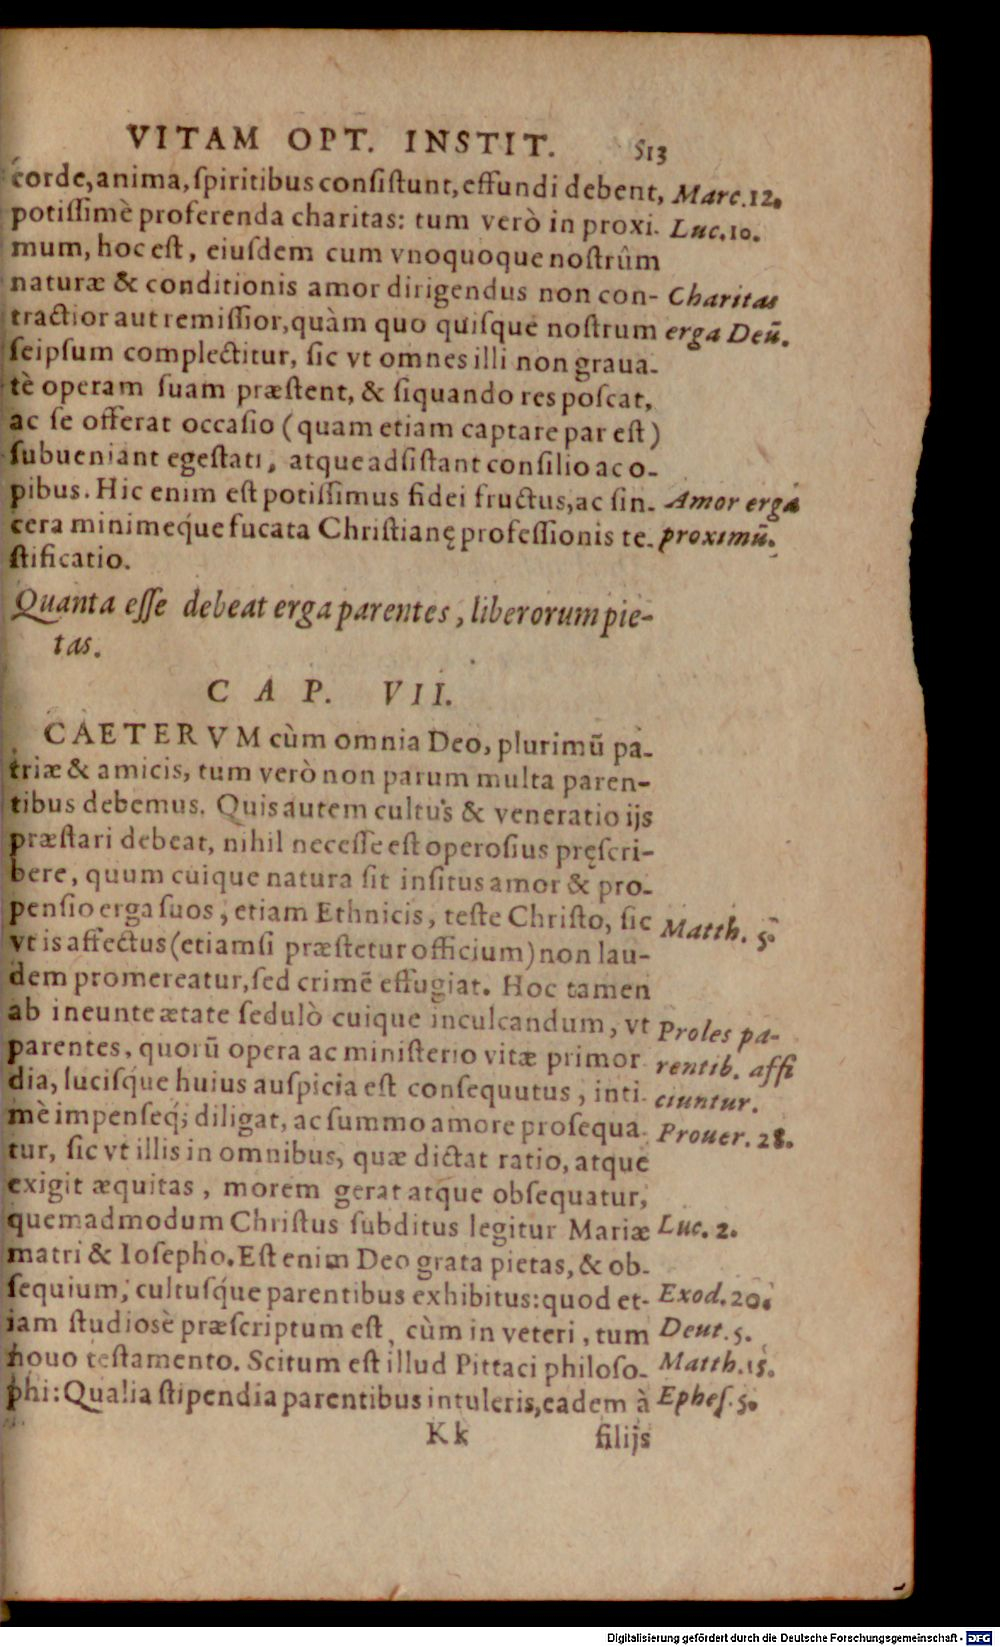 VITAM OPT. INSTIT. 513
corde, anima, ſpiritibus conſiſtunt, effundi debent, Marc. 12.
potiſſimè proferenda charitas: tum verò in proxi- Luc. 10.
mum, hoc eſt, eiuſdem cum vnoquoque noſtrûm
naturæ & conditionis amor dirigendus non con- Charitas
tractior aut remiſſior, quàm quo quiſque noſtrum erga Deũ.
ſeipſum complectitur, ſic vt omnes illi non graua-
tè operam ſuam præſtent, & ſiquando res poſcat,
ac ſe offerat occaſio (quam etiam captare par eſt)
ſubueniant egeſtati, atque adſiſtant conſilio ac o-
pibus. Hic enim eſt potiſſimus fidei fructus, ac ſin- Amor erga
cera minimeq́ue fucata Chriſtianę profeſſionis te- proximũ.
ſtificatio.
Quanta eſſe debeat erga parentes, liberorum pie-
tas.
CAP. VII.
CAETERVM cùm omnia Deo, plurimũ pa-
triæ & amicis, tum verò non parum multa paren-
tibus debemus. Quis autem cultus & veneratio ijs
præſtari debeat, nihil neceſſe eſt operoſius pręſcri-
bere, quum cuique natura ſit inſitus amor & pro-
penſio erga ſuos, etiam Ethnicis, teſte Chriſto, ſic Matth. 5.
vt is affectus (etiamſi præſtetur officium) non lau-
dem promereatur, ſed crimẽ effugiat. Hoc tamen
ab ineunte ætate ſedulò cuique inculcandum, vt Proles pa-
parentes, quorũ opera ac miniſterio vitæ primor- rentib. affi
dia, luciſq́ue huius auſpicia eſt conſequutus, inti- ciuntur.
mè impenſeq́; diligat, ac ſummo amore proſequa- Prouer. 28.
tur, ſic vt illis in omnibus, quæ dictat ratio, atque
exigit æquitas, morem gerat atque obſequatur,
quemadmodum Chriſtus ſubditus legitur Mariæ Luc. 2.
matri & Ioſepho. Eſt enim Deo grata pietas, & ob-
ſequium, cultuſq́ue parentibus exhibitus: quod et- Exod. 20.
iam ſtudioſè præſcriptum eſt, cùm in veteri, tum Deut. 5.
nouo teſtamento. Scitum eſt illud Pittaci philoſo- Matth. 15.
phi: Qualia ſtipendia parentibus intuleris, eadem à Epheſ. 5.
Kk filijs
Digitalisierung gefördert durch die Deutsche Forschungsgemeinschaft - DFG